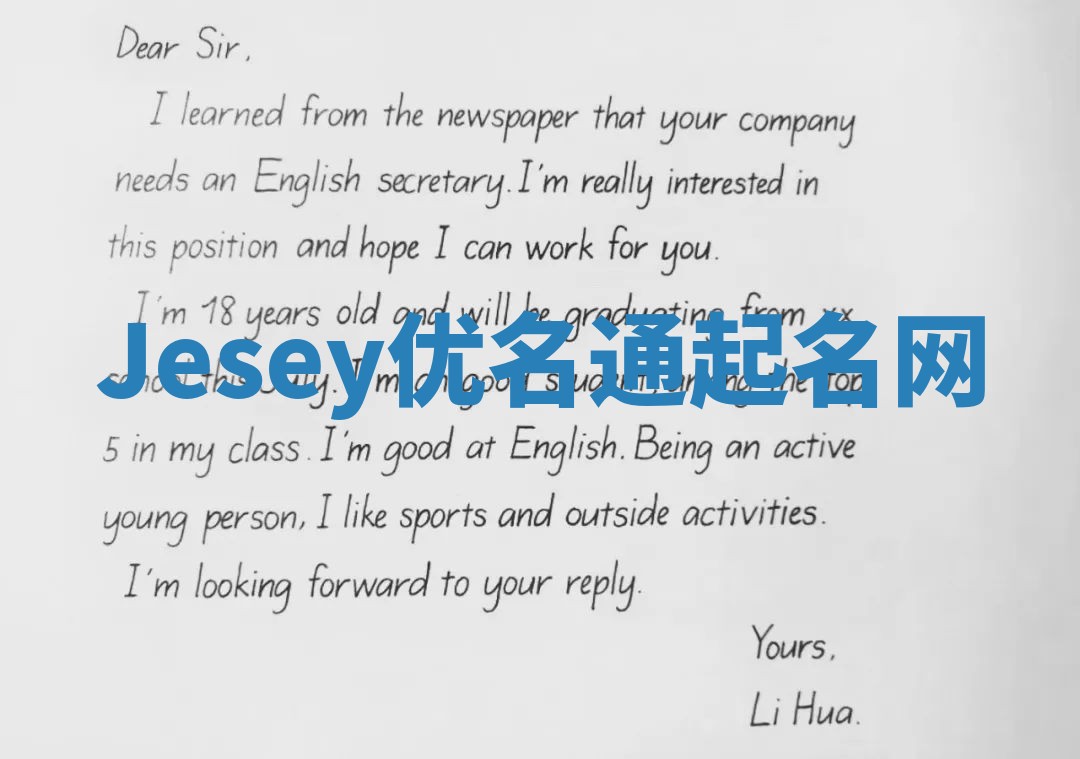 Dear Sir,
I learned from the newspaper that your company
needs an English secretary. I'm really interested in
this position and hope I can work for you.
I'm 18 years old and will be graduating from xx
Jesey优名通起名网
school this July. I'm a good student, among the top
5 in my class. I'm good at English. Being an active
young person, I like sports and outside activities.
I'm looking forward to your reply.
Yours,
Li Hua.